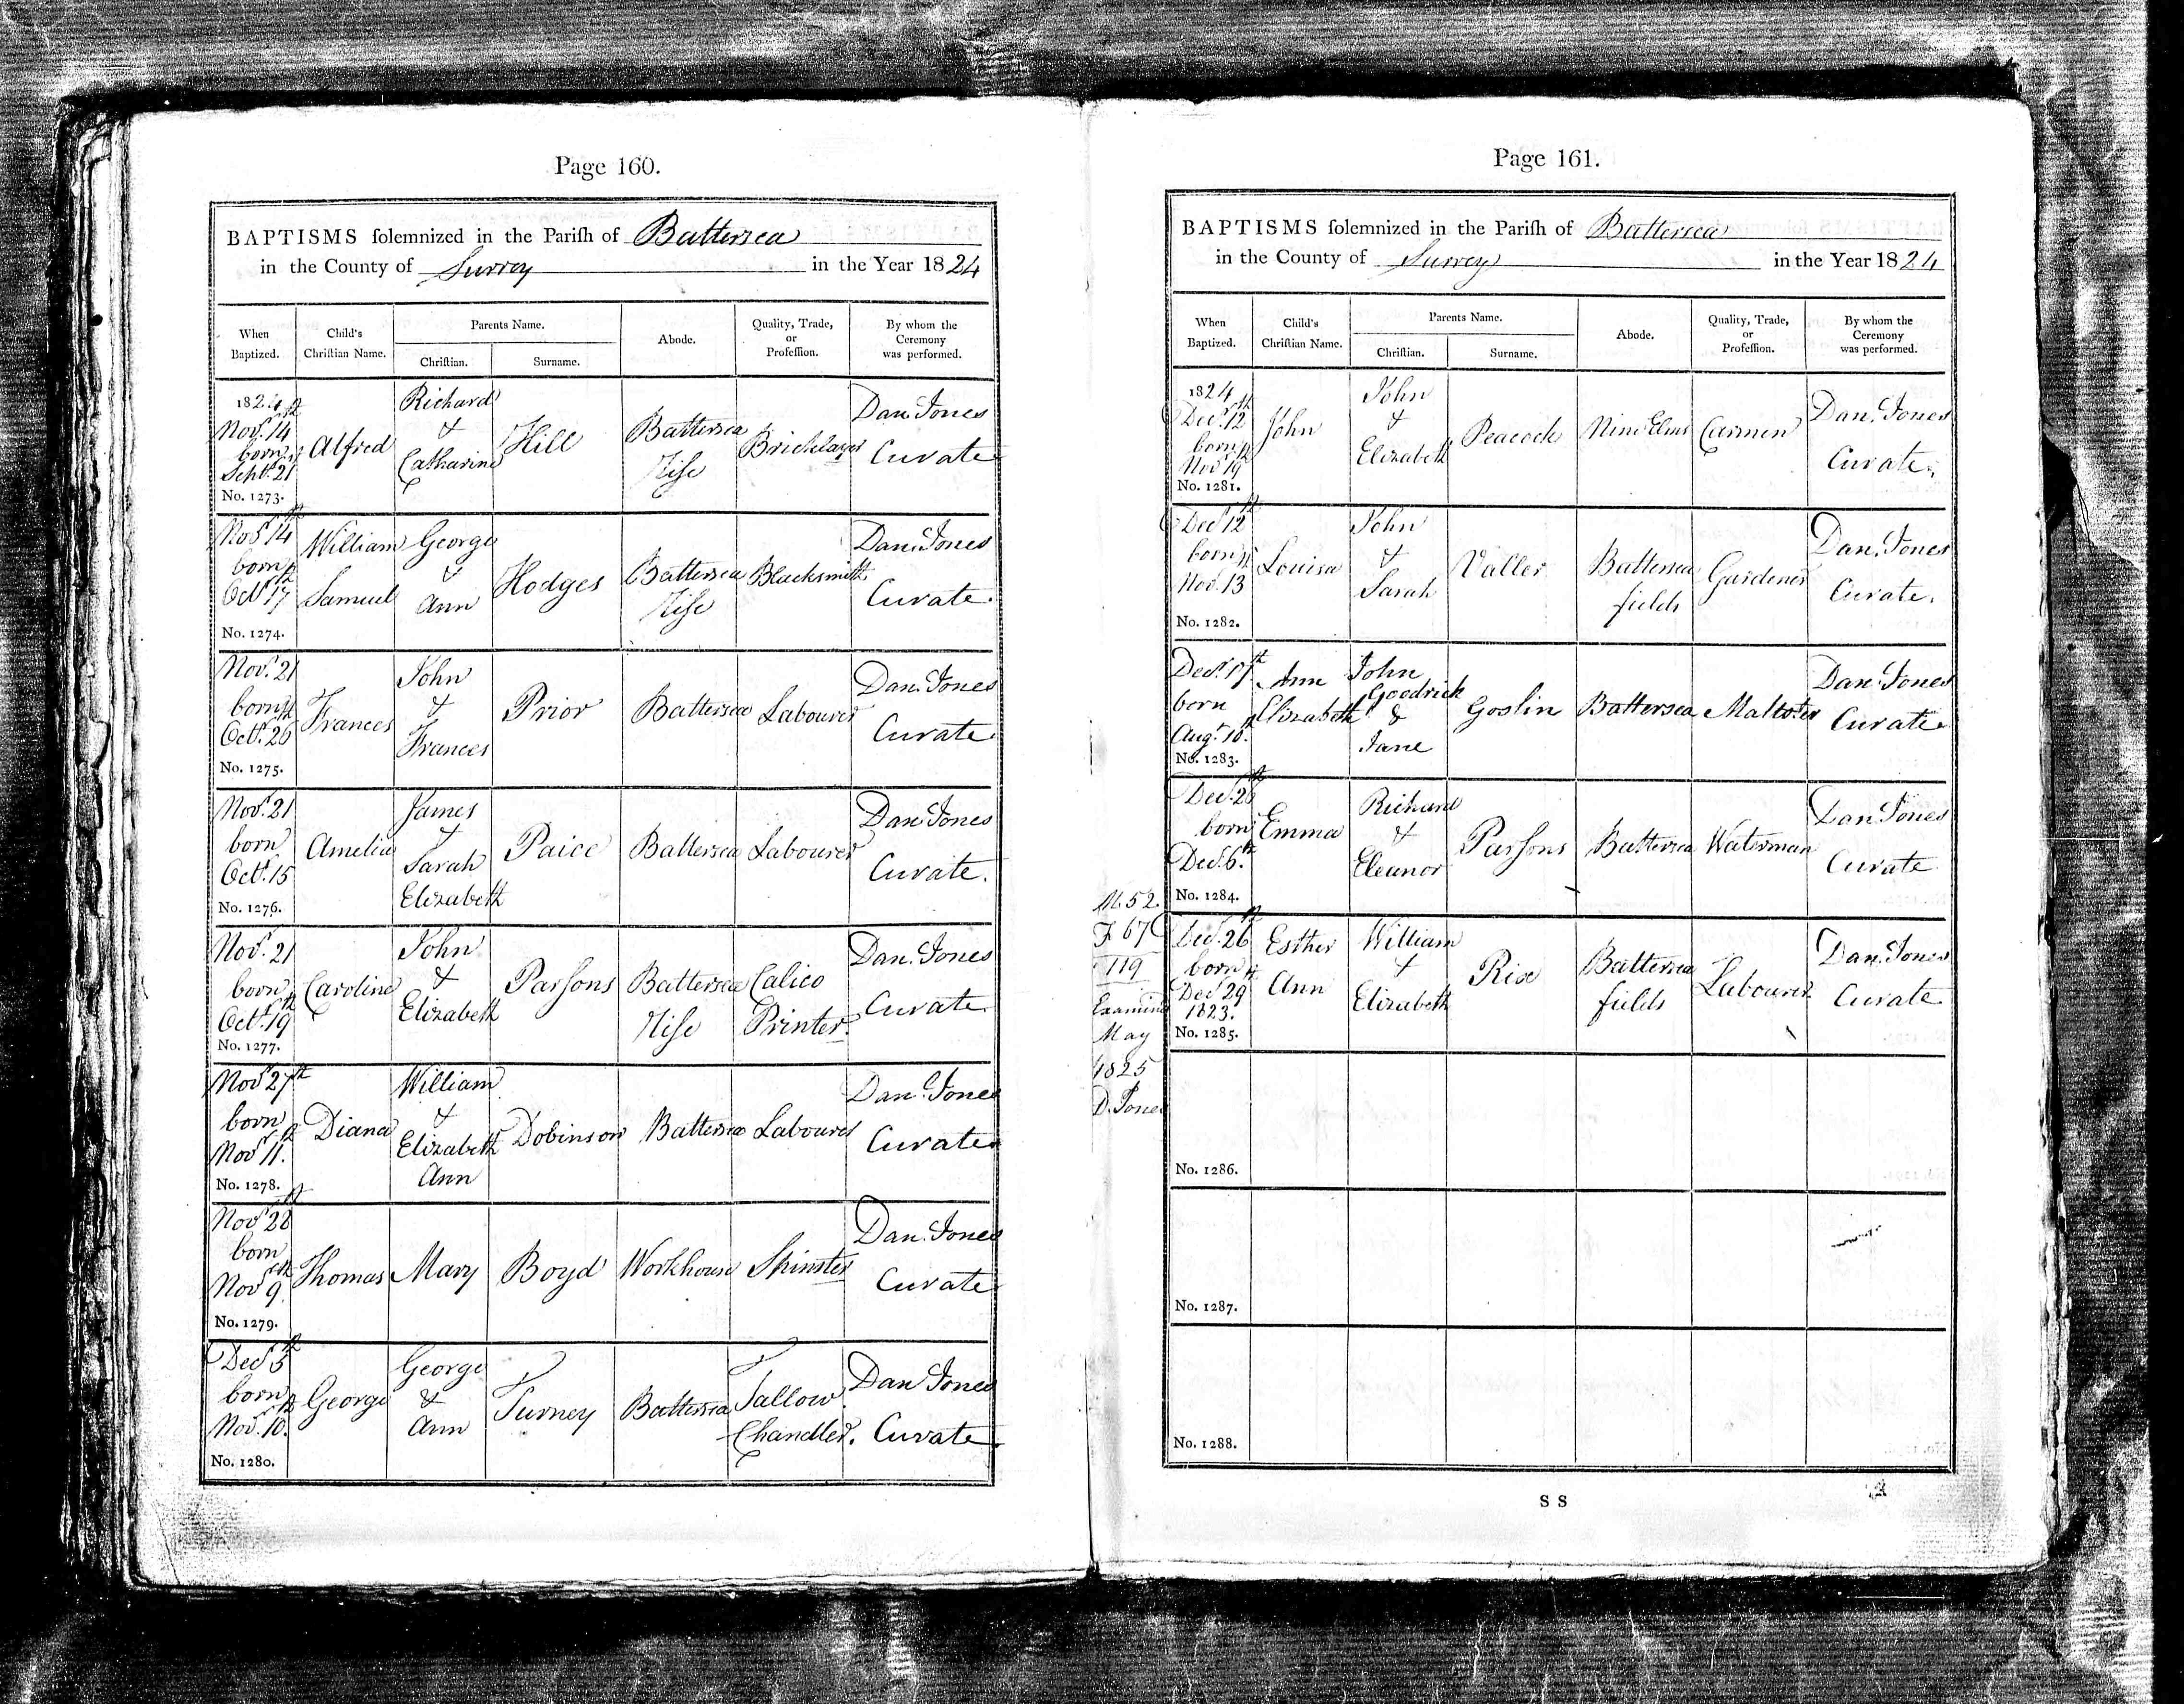 Page 160.
BAPTISMS solemnized in the Parish of Battersea
in the County of Surrey in the Year 1824
When Baptized.
Child's Christian Name.
Parents Name.
Christian.
Surname.
Abode.
Quality, Trade, or Profession.
By whom the Ceremony was performed.
1824 Novr. 14th born Septr. 21st No. 1273.
Alfred
Richard & Catharine
Hill
Battersea Rise
Bricklayer
Dan. Jones Curate
Novr 14th born Octr 17th No. 1274.
William Samuel
George & Ann
Hodges
Battersea Rise
Blacksmith
Dan. Jones Curate.
Novr. 21 born Octr. 26th No. 1275.
Frances
John & Frances
Prior
Battersea
Labourer
Dan. Jones Curate.
Novr. 21 born Octr. 15 No. 1276.
Amelia
James & Sarah Elizabeth
Paice
Battersea
Labourer
Dan Jones Curate.
Novr. 21 born Octr. 19th No. 1277.
Caroline
John & Elizabeth
Parsons
Battersea Rise
Calico Printer.
Dan. Jones Curate
Novr 27th born Novr 11th. No. 1278.
Diana
William & Elizabeth Ann
Dobinson
Battersea
Labourer
Dan. Jones Curate
Novr 28th born Novr 9th. No. 1279.
Thomas
Mary
Boyd
Workhouse
Spinster
Dan. Jones Curate
Decr 5th born Novr. 10th. No. 1280.
George
George & Ann
Turney
Battersea
Tallow Chandler.
Dan Jones Curate.
Page 161.
BAPTISMS solemnized in the Parish of Battersea
in the County of Surrey in the Year 1824
When Baptized.
Child's Christian Name.
Parents Name.
Christian.
Surname.
Abode.
Quality, Trade, or Profession.
By whom the Ceremony was performed.
1824 Decr. 12th born Novr 19th No. 1281.
John
John & Elizabeth
Peacock
Nine Elms
Carmen
Dan. Jones Curate.
Decr 12th born Novr. 13th No. 1282.
Louisa
John & Sarah
Valler
Battersea fields
Gardener
Dan. Jones Curate.
Decr. 17th born Augt. 10th. No. 1283.
Ann Elizabeth
John Goodrich & Jane
Goslin
Battersea
Maltster
Dan. Jones Curate.
Decr. 26th born Decr. 6th. No. 1284.
Emma
Richard & Eleanor
Parsons
Battersea
Waterman
Dan Jones Curate
M. 52.
F 67
119
Examined
May
1825
D. Jones
Decr. 26th born Decr 29th 1823. No. 1285.
Esther Ann
William & Elizabeth
Rix
Battersea fields
Labourer
Dan. Jones Curate
No. 1286.
No. 1287.
No. 1288.
S S